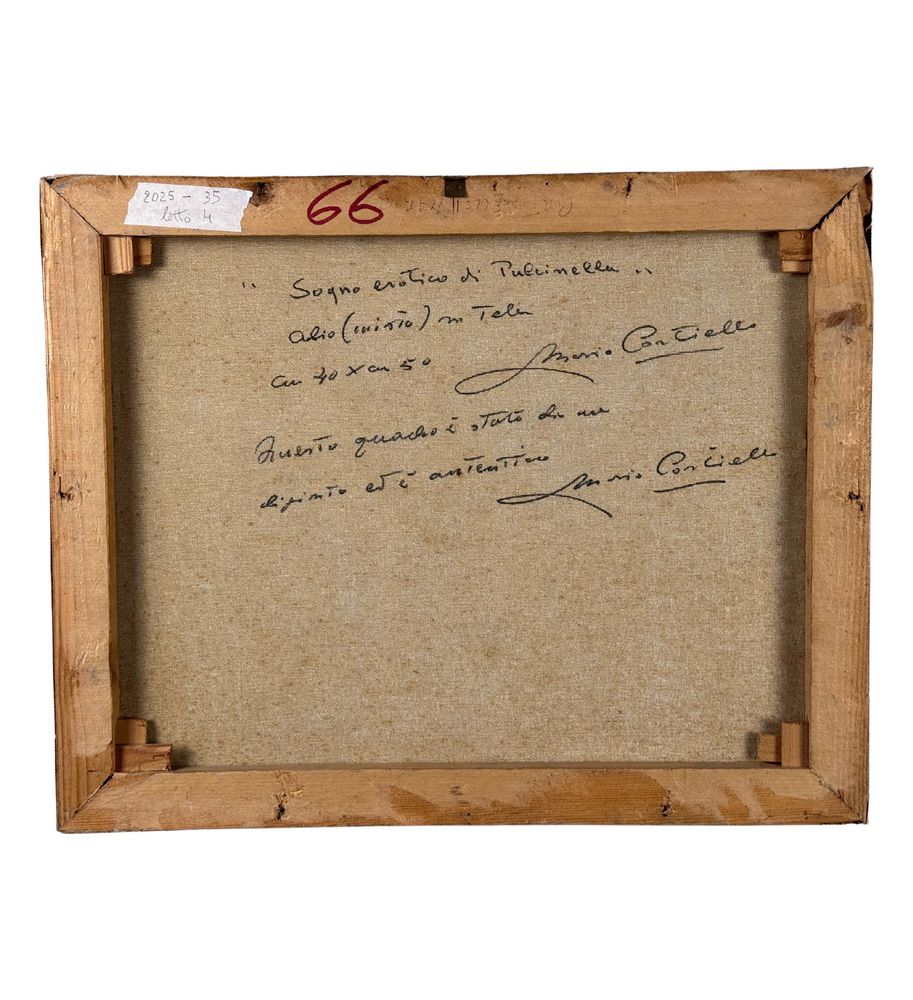 2025 - 35
lotto 4
66
" Sogno erotico di Pulcinella "
olio (misto) su Tela
cm 40 x cm 50
Mario Cortiello
Questo quadro è stato da me
dipinto ed è autentico
Mario Cortiello